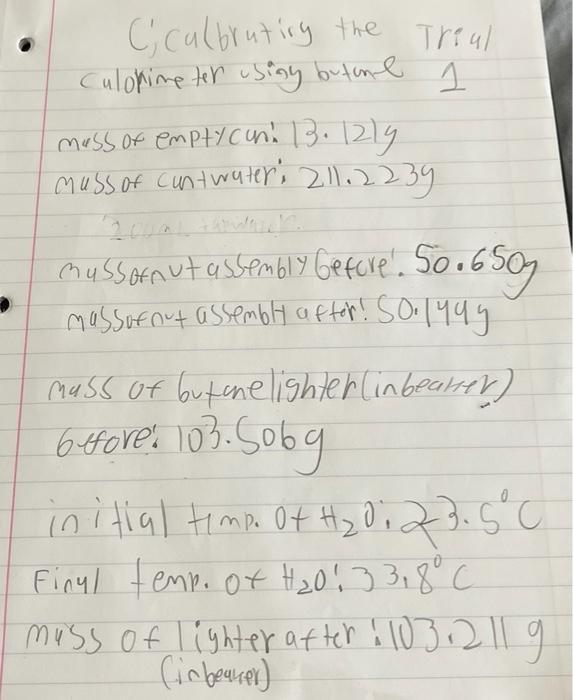 C; calbrating the Trial
calorimeter using butane 1
mass of empty can: 13.121g
mass of can+water: 211.223g
mass of nut assembly before: 50.650g
mass of nut assembly after: 50.144g
mass of butane lighter (in beaker)
before: 103.506g
initial temp. of H2O: 23.5°C
Final temp. of H2O: 33.8°C
mass of lighter after: 103.211 g
(in beaker)